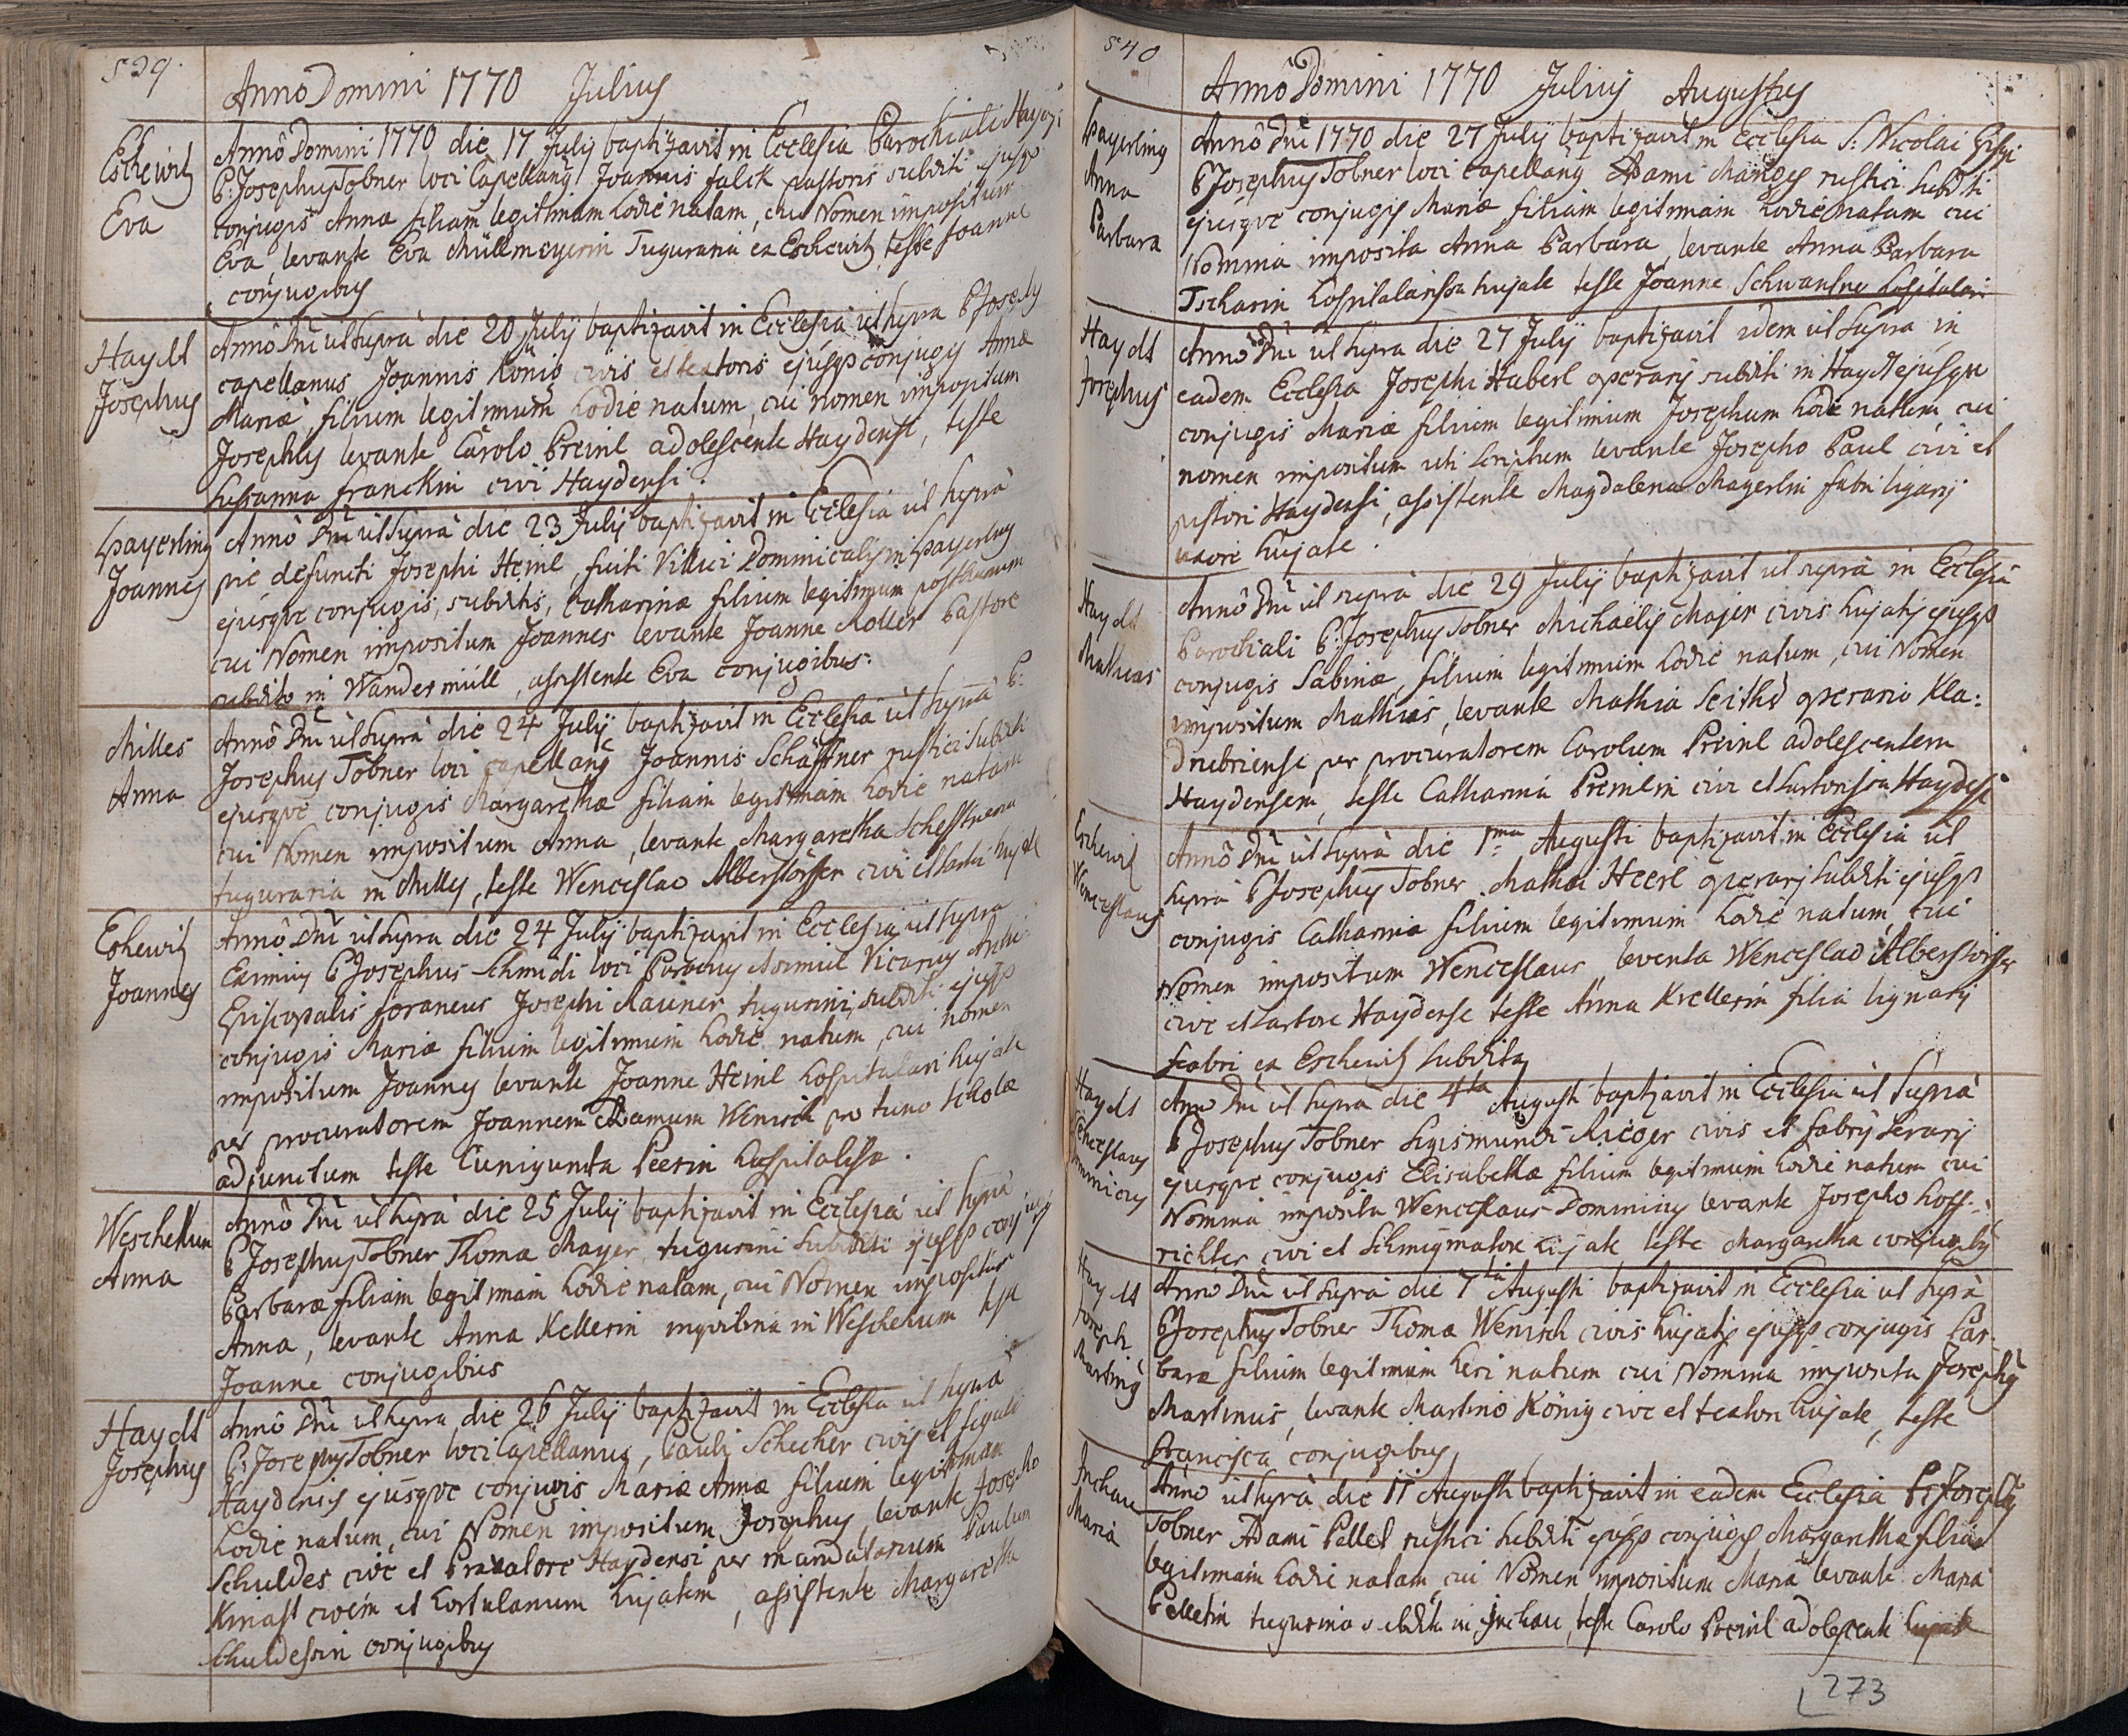 539.
Anno Domini 1770 Julius
Eschewitz
Eva
Annô Domini 1770 die 17 Julij baptizavit in Ecclesia Parochiali
P: Josephus Tobner loci Capellang Joannis Falck pastoris subditi ejusqs
conjugis Annæ filiam legitimam hodie natam, cui Nomen impositum
Eva, levante Eva Müllmeyerin Tuguraria ex Eschewitz, teste Joanne
conjugibus
Haydt
Josephus
Annô Dni ut supra die 20 Julij baptizavit in Ecclesia ut supra P Josephus
capellanus Joannis König civis et textoris ejusqs conjugis Annæ
Mariæ, filium legitimum hodie natum, cui nomen impositum
Josephus levante Carolo Preinl adolescente Haydensi, teste
Susanna Franckin civi Haydensi.
Spayerling
Joannes
Annô Dni ut supra die 23 Julij baptizavit in Ecclesia ut supra
pie defuncti Josephi Heinl, fuiti Villici Dominicalis in Spayerling
ejusque conjugis, subditis, Catharinæ filium legitimum posthumum
cui Nomen impositum Joannes levante Joanne Moller Pastore
subdito in Wandermüll, assistente Eva conjugibus.
Milles
Anna
Annô Dni ut supra die 24 Julij baptizavit in Ecclesia ut supra P:
Josephus Tobner loci capellang Joannis Schäffner rustici subditi
ejusque conjugis Margarethæ filiam legitimam hodie natam
cui Nomen impositum Anna, levante Margaretha Scheffnerin
tuguraria in Milles, teste Wenceslao Alberstörffer civi et
Eshewitz
Joannes
Annô Dni ut supra die 24 Julij baptizavit in Ecclesia ut supra
Eximius P Josephus Schmidi loci Parochus Vicarius Archi-
Episcopalis foraneus Josephi Rauner tugurini, subditi ejusqs
conjugis Mariæ filium legitimum hodie natum, cui nomen
impositum Joannes levante Joanne Heinl hospitalari hujate
per procuratorem Joannem Adamum Wenisch pro tunc scholæ
adjunctum teste Cunigunda Peerin hospitalissa.
Weschekun
Anna
Annô Dni ut supra die 25 Julij baptizavit in Ecclesia ut supra
P Josephus Tobner Thomæ Mayer tugurini subditi ejusqs conjugis
Barbaræ filiam legitimam hodie natam, cui Nomen impositum
Anna, levante Anna Kellerin inquilina in Weschekum teste
Joanne conjugibus
Haydt
Josephus
Annô Dni ut supra die 26 Julij baptizavit in Ecclesia ut supra
P: Josephus Tobner loci Capellanus, Pauli Schecher civis et figuli
Haydensis ejusque conjugis Mariæ Annæ filium legitimum
hodie natum, cui Nomen impositum Josephus, levante Josepho
Schuldes cive et Praxatore Haydensi per mandatarium Paulum
Kniast civem et hortulanum hujatem, assistente Margaretha
Schuldessin conjugibus
540
Annô Domini 1770 Julius Augustus
Spayerling
Anna
Barbara
Annô Dni 1770 die 27 Julij baptizavit in Ecclesia S: Nicolai
P Josephus Tobner loci capellang Adami Manges rustici subditi
ejusque conjugis Mariæ filiam legitimam hodie natam cui
Nomina imposita Anna Barbara, levante Anna Barbara
Tscharin hospitalarissa hujate teste Joanne Schwantner hospitalari
Haydt
Josephus
Annô Dni ut supra die 27 Julij baptizavit idem ut supra in
eadem Ecclesia Josephi Haberl operarij subditi in Haydt ejusque
conjugis Mariæ filium legitimum Josephum hodie natum, cui
nomen impositum uti scriptum levante Josepho Paul civi et
pistori Haydensi, assistente Magdalena Mayerlin fabri lignarij
uxore hujate.
Haydt
Mathias
Annô Dni ut supra die 29 Julij baptizavit ut supra in Ecclesia
Parochiali P: Josephus Tobner Michaelis Majer civis hujatis ejusqs
conjugis Sabinæ, filium legitimum hodie natum, cui Nomen
impositum Mathias, levante Mathia Seitho operario Kla:
drubiense per procuratorem Carolum Preinl adolescentem
Haydensem, teste Catharina Preinlin cive et sartorissa Haydensi
Eschewitz
Wenceslaus
Annô Dni ut supra die 1ma Augusti baptizavit in Ecclesia ut
supra P Josephus Tobner Mathæi Heerl operarij subditi ejusqs
conjugis Catharinæ filium legitimum hodie natum, cui
Nomen impositum Wenceslaus levante Wenceslao Alberstörffer
cive et sartore Haydense teste Anna Krellerin filia lignarij
fabri ex Eschewitz subdita
Haydt
Wenceslaus
Dominicus
Anno Dni ut supra die 4ta Augusti baptizavit in Ecclesia ut supra
P Josephus Tobner Sigismundi Rieger civis et fabri serarij
ejusque conjugis Elisabethæ filium legitimum hodie natum cui
Nomina imposita Wenceslaus Dominicus levante Josepho Hoff-
richter civi et Schmigmatore hujate teste Margaretha conjugibus
Haydt
Joseph
Marting
Anno Dni ut supra die 7ta Augusti baptizavit in Ecclesia ut supra
P Josephus Tobner Thomæ Wenisch civis hujatis ejusqs conjugis Bar-
baræ filium legitimum heri natum cui Nomina imposita Josephus
Martinus, levante Martino König cive et textore hujate, teste
Francisca conjugibus
Inchau
Maria
Anno ut supra die 11 Augusti baptizavit in eadem Ecclesia P: Josephus
Tobner Adami Pellet rustici subditi ejusqs conjugis Margarethæ filiam
legitimam hodie natam, cui Nomen impositum Maria levante Maria
Pelletin tugurina subdita in Inchau, teste Carolo Preinl adolescente hujate
273